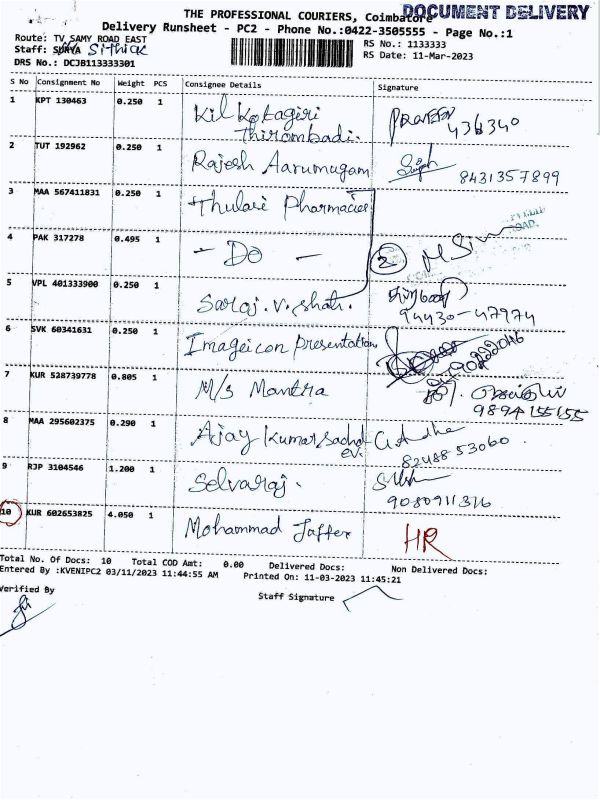 THE PROFESSIONAL COURIERS, Coimbatore
DOCUMENT DELIVERY
Delivery Runsheet - PC2 - Phone No.:0422-3505555 - Page No.:1
Route: TV SAMY ROAD EAST
RS No.: 1133333
Staff: SURYA Sithick
RS Date: 11-Mar-2023
DRS No.: DCJB113333301
S No Consignment No Weight PCS Consignee Details Signature
1 KPT 130463 0.250 1 Kil Kotagiri
Thirombadi.
436340
2 TUT 192962 0.250 1 Rajesh Aarumugam
8431357899
3 MAA 567411831 0.250 1 Thulasi Pharmacies
4 PAK 317278 0.495 1 - Do - 2
5 VPL 401333900 0.250 1 Saroj. V. Shah.
94430-47974
6 SVK 60341631 0.250 1 Imageicon Presentation
7 KUR 528739778 0.805 1 M/s Mantra
9894155155
8 MAA 295602375 0.290 1 Ajay Kumar Sachd
ev.
82488 53060
9 RJP 3104546 1.200 1 Selvaraj.
9080911316
10 KUR 602653825 4.050 1 Mohammad Jaffer HR
Total No. Of Docs: 10 Total COD Amt: 0.00 Delivered Docs: Non Delivered Docs:
Entered By :KVENIPC2 03/11/2023 11:44:55 AM Printed On: 11-03-2023 11:45:21
Verified By
Staff Signature